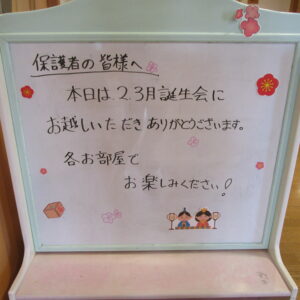 保護者の皆様へ
本日は2.3月誕生会に
お越しいただきありがとうございます。
各お部屋で
お楽しみください!